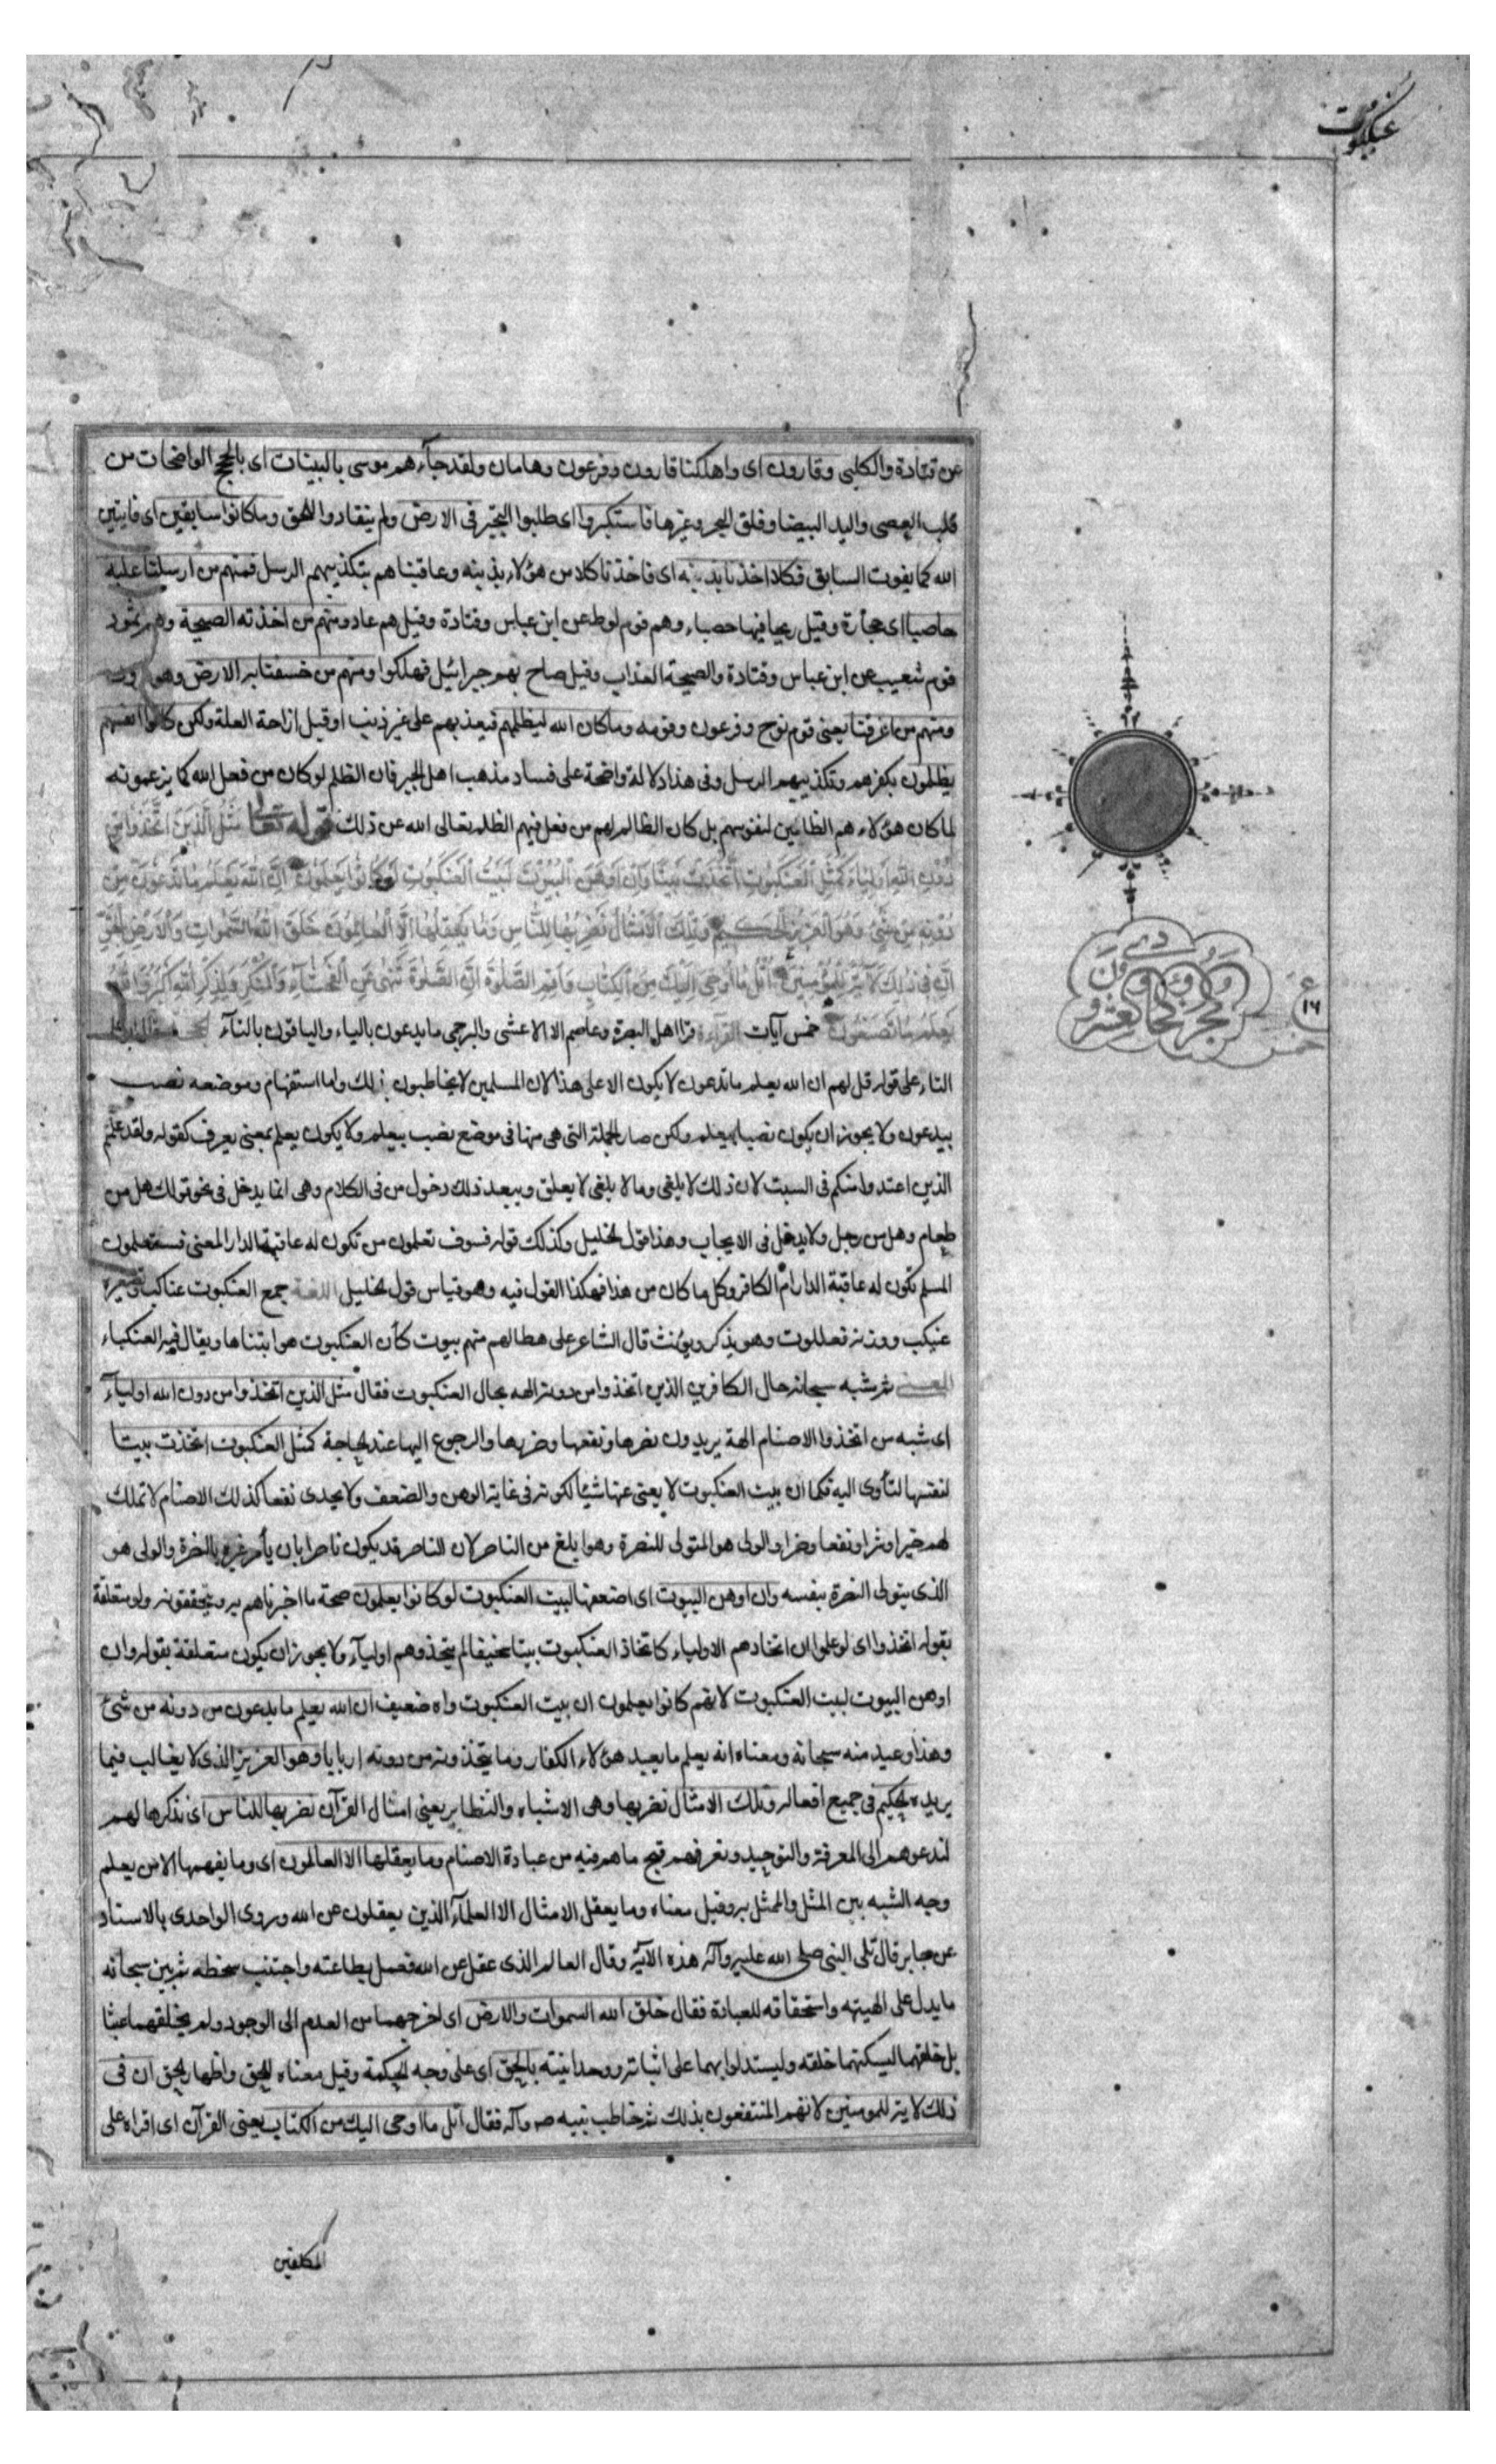 عنكبوت
عن قتادة والكلبى وقارون اى واهلكنا قارون وفرعون وهامان ولقد جآءهم موسى بالبينات اى بالحجج الواضحات من
قلب العصى واليد البيضا وفلق البحر وغيرها فاستكبروا اى طلبوا التجبر فى الارض ولم ينقادوا للحق وماكانوا سابقين اى فايتين
الله كما يفوت السابق فكلا اخذنا بذنبه اى فاخذنا كلا من هؤلاء بذنبه وعاقبناهم بتكذيبهم الرسل فمنهم من ارسلنا عليه
حاصبا اى حجارة وقيل ريحا فيها حصباء وهم قوم لوط عن ابن عباس وقتادة وقيل هم عاد ومنهم من اخذته الصيحة وهم ثمود
قوم شعيب عن ابن عباس وقتادة والصيحة العذاب وقيل صاح بهم جبرائيل فهلكوا ومنهم من خسفنا به الارض وهو
ومنهم من اغرقنا يعنى قوم نوح وفرعون وقومه وماكان الله ليظلمهم فيعذبهم على غير ذنب او قبل ازاحة العلة ولكن كانوا انفسهم
يظلمون بكفرهم وتكذيبهم الرسل وفى هذا دلالة واضحة على فساد مذهب اهل الجبر فان الظلم لو كان من فعل الله كما يزعمونه
لما كان هؤلاء هم الظالمين لنفوسهم بل كان الظالم لهم من فعل فيهم الظلم تعالى الله عن ذلك قوله تعالى مَثَلُ الَّذينَ اتَّخَذُوا مِن
دُونِ اللهِ اَولِياءَ كَمَثَلِ الْعَنكَبُوتِ اتَّخَذَتْ بَيْتًا وَاِنَّ اَوْهَنَ الْبُيُوْتِ لَبَيْتُ الْعَنكَبُوتِ لَوْ كَانُوا يَعلَمُونَ اِنَّ اللهَ يَعْلَمُ مَا تَدْعُونَ مِنْ
دُوْنِهِ مِنْ شَئٍ وَهُوَ الْعَزيزُ الْحَكيمُ وَتِلْكَ الاَمْثالُ نَضْرِبُهَا لِلنَّاسِ وَمَا يَعْقِلُهَا اِلَّا الْعَالِمُونَ خَلَقَ اللهُ السَّمٰواتِ وَالاَرْضَ بِالْحَقِّ
اِنَّ فى ذٰلِكَ لَآيَةً لِلْمُؤْمِنينَ اُتْلُ مَا اُوحِىَ اِلَيْكَ مِنَ الْكِتَابِ وَاَقِمِ الصَّلٰوةَ اِنَّ الصَّلٰوةَ تَنْهٰى عَنِ الْفَحْشَآءِ وَالْمُنْكَرِ وَلَذِكْرُ اللهِ اَكْبَرُ وَاللهُ
يَعْلَمُ مَا تَصْنَعُونَ خمس آيات القراءة قرا اهل البصرة وعاصم الا الاعشى والبرجمى ما يدعون بالياء والباقون بالتآء
التاء على قوله قل لهم ان الله يعلم ما تدعون لا يكون الا على هذا لان المسلمين لا يخاطبون بذلك واما استفهام وموضعه نصب
بيدعون ولا يجوز ان يكون نصبا بيعلم ولكن صار الجملة التى هى منها فى موضع نصب بيعلم ولا يكون يعلم بمعنى يعرف كقوله ولقد علمتم
الذين اعتدوا منكم فى السبت لان ذلك لا يلغى وما لا يلغى لا يعلق ويبعد ذلك دخول من فى الكلام وهى انما يدخل فى نحو قولك هل من
طعام وهل من رجل ولا يدخل فى الايجاب وهذا قول الخليل وكذلك قوله فسوف تعلمون من تكون له عاقبة الدار المعنى فستعلمون
المسلم تكون له عاقبة الدار ام الكافر وكل ما كان من هذا فهكذا القول فيه وهو قياس قول الخليل اللغة جمع العنكبوت عناكب وتصغيره
عنيكب ووزنه فعللوت وهو يذكر ويؤنث قال الشاعر على هطالهم منهم بيوت كأن العنكبوت هو ابتناها ويقال فيه العنكباء
المعنى ثم شبه سبحانه حال الكافرين الذين اتخذوا من دونه الهه بحال العنكبوت فقال مثل الذين اتخذوا من دون الله اوليآء
اى شبه من اتخذوا الاصنام الهة يريدون نصرها ونفعها وضرها والرجوع اليها عند الحاجة كمثل العنكبوت اتخذت بيتا
لنفسها لتأوى اليه فكما ان بيت العنكبوت لا يغنى عنها شيئا لكونه فى غاية الوهن والضعف ولا يجدى نفعا كذلك الاصنام لا تملك
لهم خيرا وشرا ونفعا وضرا والولى هو المتولى للنصرة وهو ابلغ من الناصر لان الناصر قد يكون ناصرا بان يأمر غيره بالنصرة والولى هو
الذى يتولى النصرة بنفسه وان اوهن البيوت اى اضعفها لبيت العنكبوت لو كانوا يعلمون صحة ما اخبرناهم به ويتحققونه ولو متعلقة
بقوله اتخذوا اى لو علموا ان اتخاذهم الاولياء كاتخاذ العنكبوت بيتا سخيفا لم يتخذوهم اوليآء ولا يجوز ان يكون متعلقة بقوله وان
اوهن البيوت لبيت العنكبوت لانهم كانوا يعلمون ان بيت العنكبوت واه ضعيف ان الله يعلم ما يدعون من دونه من شئ
وهذا وعيد منه سبحانه ومعناه انه يعلم ما يعبد هؤلاء الكفار وما يتخذونه من دونه اربابا وهو العزيز الذى لا يغالب فيما
يريده الحكيم فى جميع افعاله وتلك الامثال نضربها وهى الاشباه والنظاير يعنى امثال القرآن نضربها للناس اى نذكرها لهم
لندعوهم الى المعرفة والتوحيد ونعرفهم قبح ما هم فيه من عبادة الاصنام وما يعقلها الا العالمون اى وما يفهمها الا من يعلم
وجه الشبه بين المثل والممثل به وقيل معناه وما يعقل الامثال الا العلمآء الذين يعقلون عن الله وروى الواحدى بالاسناد
عن جابر قال تلى النبى صلى الله عليه وآله هذه الآية وقال العالم الذى عقل عن الله فعمل بطاعته واجتنب سخطه ثم بين سبحانه
ما يدل على الهيته واستحقاقه للعبادة فقال خلق الله السموات والارض اى اخرجهما من العدم الى الوجود ولم يخلقهما عبثا
بل خلقهما ليسكنهما خلقه وليستدلوا بهما على اثباته ووحدانيته بالحق اى على وجه الحكمة وقيل معناه للحق واظهار الحق ان فى
ذلك لاية للمومنين لانهم المنتفعون بذلك ثم خاطب نبيه ص وآله فقال اتل ما اوحى اليك من الكتاب يعنى القرآن اى اقراه على
المكلفين
ع
١٦
خمس